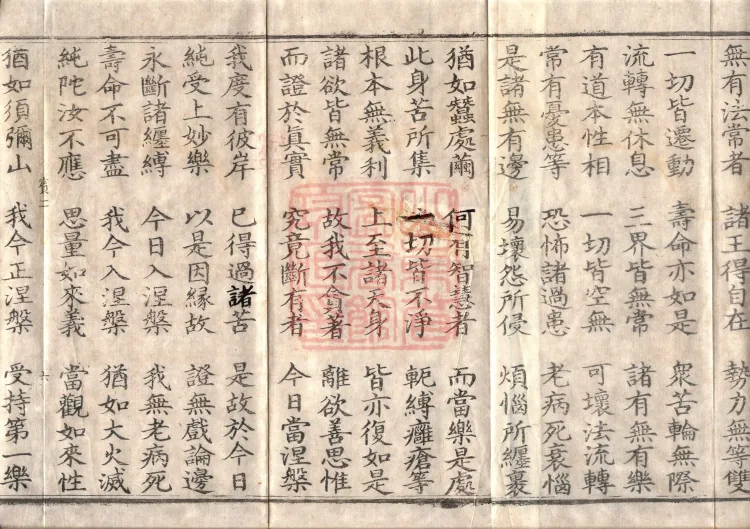 無有法常者 諸王得自在 勢力無等雙
一切皆遷動 壽命亦如是 衆苦輪無際
流轉無休息 三界皆無常 諸有無有樂
有道本性相 一切皆空無 可壞法流轉
常有憂患等 恐怖諸過患 老病死衰惱
是諸無有邊 易壞怨所侵 煩惱所纏裹
猶如蠶處繭 何有智慧者 而當樂是處
此身苦所集 一切皆不淨 軛縛癰瘡等
根本無義利 上至諸天身 皆亦復如是
諸欲皆無常 故我不貪著 離欲善思惟
而證於眞實 究竟斷有者 今日當涅槃
我度有彼岸 已得過諸苦 是故於今日
純受上妙樂 以是因緣故 證無戲論邊
永斷諸纏縛 今日入涅槃 我無老病死
壽命不可盡 我今入涅槃 猶如大火滅
純陀汝不應 思量如來義 當觀如來性
賓二 六
猶如須彌山 我今正涅槃 受持第一樂